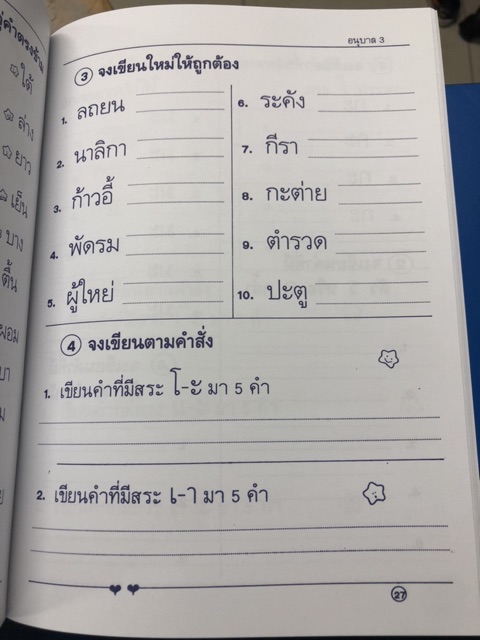 ใต้
ล่าง
ยาว
เย็น
บาง
ตื้น
ผอม
อนุบาล 3
3 จงเขียนใหม่ให้ถูกต้อง
1. ลถยน
2. นาลิกา
3. ก้าวอี้
4. พัดรม
5. ผู้ใหย่
6. ระคัง
7. กีรา
8. กะต่าย
9. ตำรวด
10. ปะตู
4 จงเขียนตามคำสั่ง
1. เขียนคำที่มีสระ โ-ะ มา 5 คำ
2. เขียนคำที่มีสระ เ-า มา 5 คำ
27